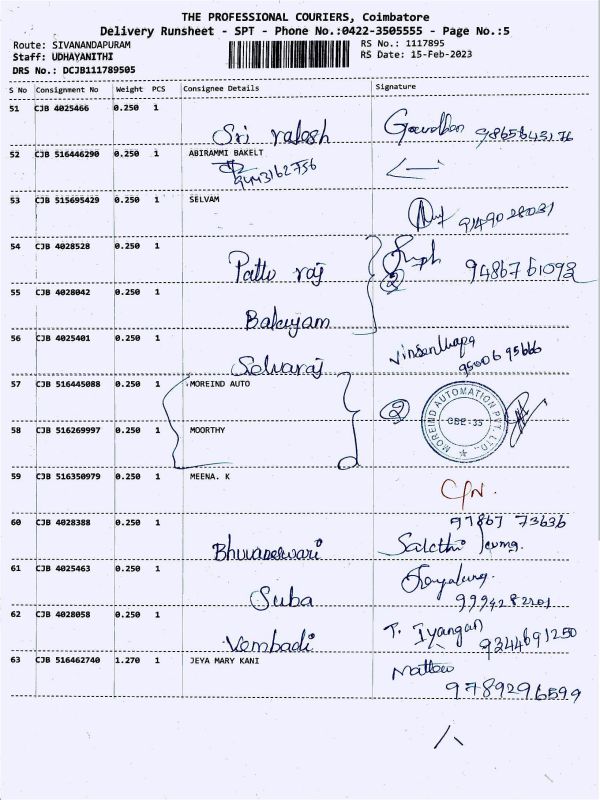 THE PROFESSIONAL COURIERS, Coimbatore
Delivery Runsheet - SPT - Phone No.:0422-3505555 - Page No.:5
Route: SIVANANDAPURAM RS No.: 1117895
Staff: UDHAYANITHI RS Date: 15-Feb-2023
DRS No.: DCJB111789505
S No Consignment No Weight PCS Consignee Details Signature
51 CJB 4025466 0.250 1
Sri ralesh 9865643176
52 CJB 516446290 0.250 1 ABIRAMMI BAKELT
9443162756
53 CJB 515695429 0.250 1 SELVAM
54 CJB 4028528 0.250 1
Pattu raj 2 9486761092
55 CJB 4028042 0.250 1
Bakiyam
56 CJB 4025401 0.250 1
Selvaraj 9500695666
57 CJB 516445088 0.250 1 MOREIND AUTO
2 MOREIND AUTOMATION PVT. LTD., CBE-35
58 CJB 516269997 0.250 1 MOORTHY
59 CJB 516350979 0.250 1 MEENA. K
60 CJB 4028388 0.250 1 97867 73636
Bhuvaneswari
61 CJB 4025463 0.250 1
Suba
62 CJB 4028058 0.250 1
Vembadi T. Iyangan 9344691250
63 CJB 516462740 1.270 1 JEYA MARY KANI
9789296599